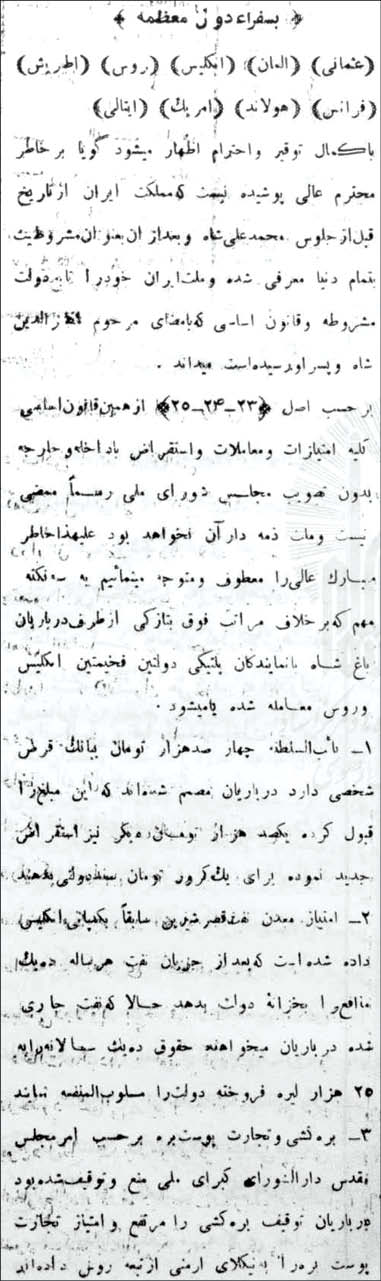 ﴿ بسفراء دول معظمه ﴾
(عثمانی) (المان) (انگلیس) (روس) (اطریش)
(فرانس) (هولاند) (امریك) (ایتالی)
باکمال توقیر و احترام اظهار میشود گویا بر خاطر
محترم عالی پوشیده نیست که مملکت ایران از تاریخ
قبل از جلوس محمدعلی شاه و بعد از ان بعنوان مشروطیت
بتمام دنیا معرفی شده و ملت ایران خود را تابع دولت
مشروطه و قانون اساسی که بامضای مرحوم مظفرالدین
شاه و پسر او رسیده است میداند .
بر حسب اصل ﴿۲۳ـ۲۴ـ۲۵﴾ از همین قانون اساسی
کلیه امتیازات و معاملات و استقراض با داخله و خارجه
بدون تصویب مجلس شورای ملی رسماً ممضی
نیست و ملت ذمه دار آن نخواهد بود علیهذا خاطر
مبارك عالی را معطوف و متوجه مینمائیم به سه نکته
مهم که بر خلاف مراتب فوق بتازگی از طرف درباریان
باغ شاه با نمایندگان پلتیکی دولتین فخیمتین انگلیس
و روس معامله شده یا میشود .
۱ـ نائب السلطنه چهار صد هزار تومان ببانك قرض
شخصی دارد درباریان مصمم شده‌اند که این مبلغ را
قبول کرده یکصد هزار تومان دیگر نیز استقراض
جدید نموده برای یك کرور تومان سند دولتی بدهند
۲ـ امتیاز معدن نفت قصر شیرین سابقاً بکمپانی انگلیسی
داده شده است که بعد از جریان نفت هر ساله ده یك
منافع را بخزانهٔ دولت بدهد حالا که نفت جاری
شده درباریان میخواهند حقوق ده یك سالانه را به
۲۵ هزار لیره فروخته دولت را مسلوب المنفعه نمایند
۳ـ بره کشی و تجارت پوست بره بر حسب امر مجلس
مقدس دارالشورای کبرای ملی منع و توقیف شده بود
درباریان توقیف بره کشی را مرتفع و امتیاز تجارت
پوست بره را به نیکلای ارمنی از تبعه روس داده‌اند